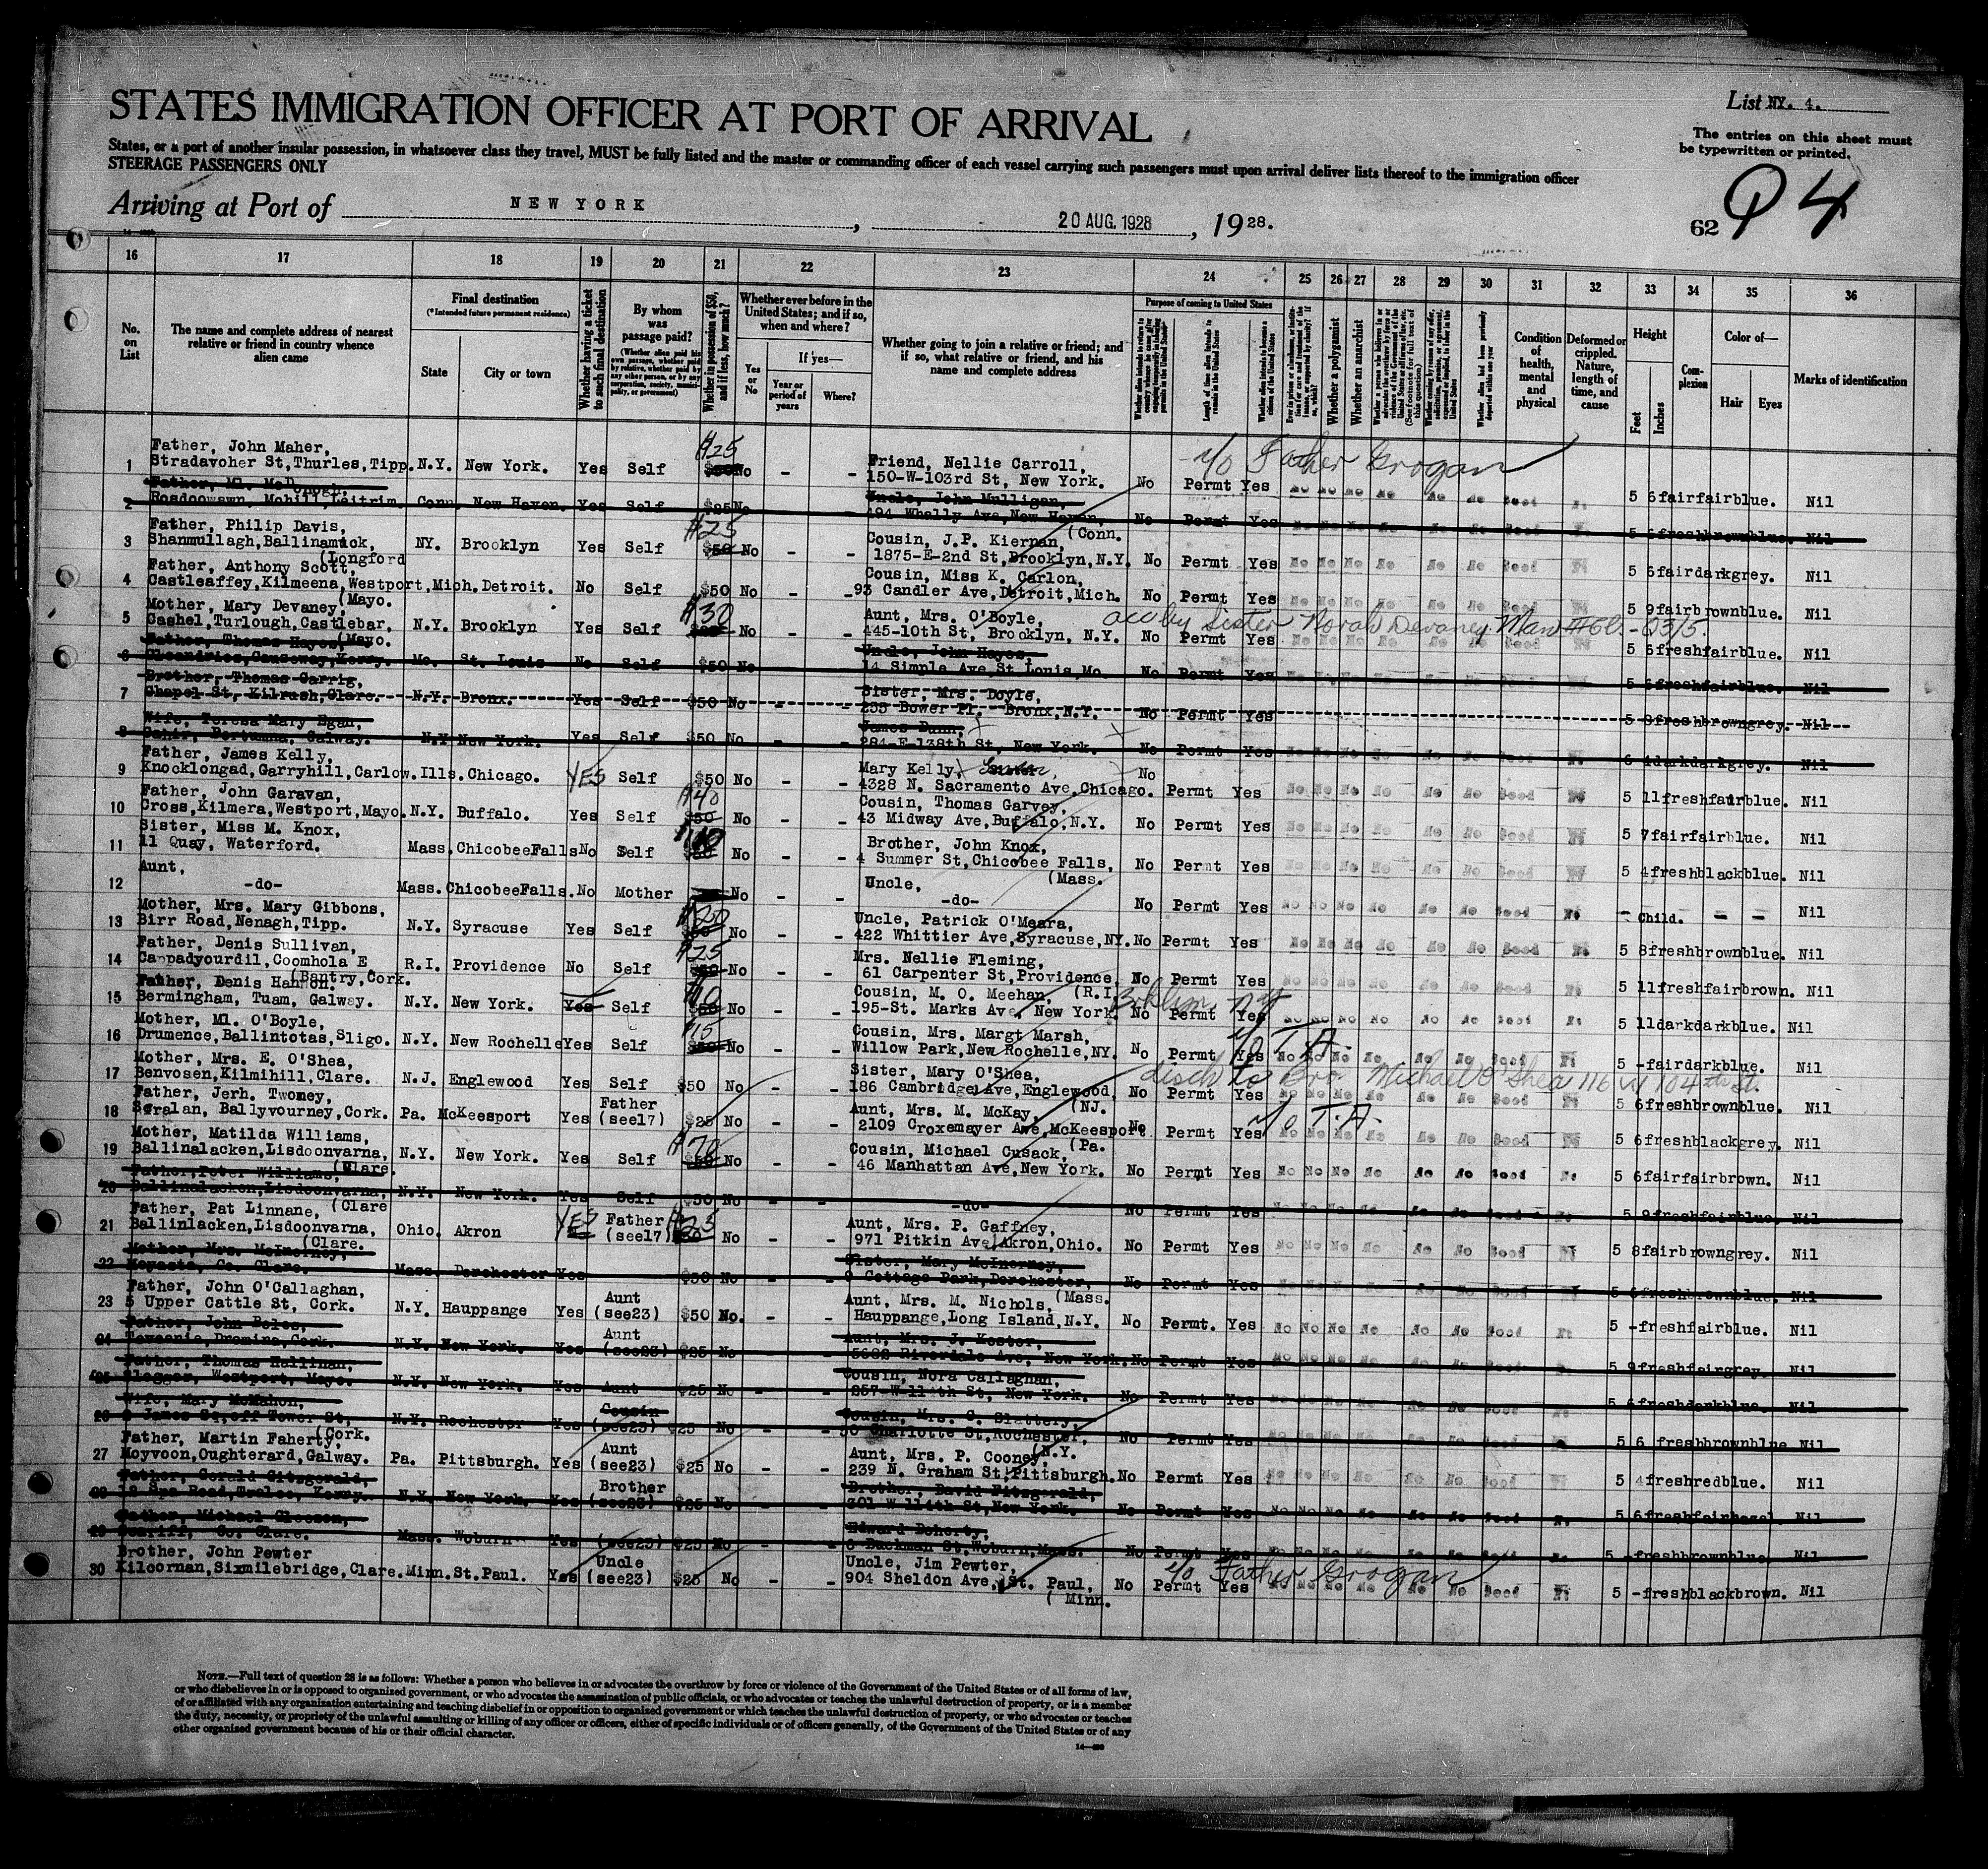 STATES IMMIGRATION OFFICER AT PORT OF ARRIVAL
List NY. 4.
The entries on this sheet must
be typewritten or printed.
States, or a port of another insular possession, in whatsoever class they travel, MUST be fully listed and the master or commanding officer of each vessel carrying such passengers must upon arrival deliver lists thereof to the immigration officer
STEERAGE PASSENGERS ONLY
Arriving at Port of NEW YORK, 20 AUG. 1928, 1928.
62
94
16 17 18 19 20 21 22 23 24 25 26 27 28 29 30 31 32 33 34 35 36
No. on List
The name and complete address of nearest relative or friend in country whence alien came
Final destination
(*Intended future permanent residence)
State
City or town
Whether having a ticket to such final destination
By whom was passage paid?
Whether in possession of $50, and if less, how much?
Whether ever before in the United States; and if so, when and where?
Yes or No
If yes—
Year or period of years
Where?
Whether going to join a relative or friend; and if so, what relative or friend, and his name and complete address
Purpose of coming to United States
Whether a polygamist
Whether an anarchist
Condition of health, mental and physical
Deformed or crippled. Nature, length of time, and cause
Height
Feet
Inches
Complexion
Color of—
Hair
Eyes
Marks of identification
Father, John Maher, $25 c/o Father Grogan
1 Stradavoher St, Thurles, Tipp. N.Y. New York. Yes Self $50 No - - Friend, Nellie Carroll, 150-W-103rd St, New York. No Permt Yes No No No No No No Good 5 6 fair fair blue. Nil
2 Mohill, Leitrim. Conn. New Haven. Yes Self $25 No Uncle, John Mulligan, 494 Whally Ave, New Haven, (Conn. No Permt Yes 5 6 fresh brown blue. Nil
Father, Philip Davis, $25
3 Shanmullagh, Ballinamuck, (Longford NY. Brooklyn Yes Self $50 No - - Cousin, J.P. Kiernan, 1875-E-2nd St, Brooklyn, N.Y. No Permt Yes No No No No No No Good 5 6 fair dark grey. Nil
Father, Anthony Scott,
4 Castleaffey, Kilmeena, Westport, (Mayo. Mich. Detroit. No Self $50 No - - Cousin, Miss K. Carlon, 93 Candler Ave, Detroit, Mich. No Permt Yes No No No No No No Good 5 9 fair brown blue. Nil
Mother, Mary Devaney, $30 Sister Norah Devaney
5 Cashel, Turlough, Castlebar, (Mayo. N.Y. Brooklyn Yes Self No - - Aunt, Mrs. O'Boyle, 445-10th St, Brooklyn, N.Y. No Permt Yes No No No No No No Good 5 6 fresh fair blue. Nil
Father, Thomas Hayes,
6 Causeway, Kerry. Mo. St. Louis No Self $50 No Uncle, John Hayes, 14 Simple Ave, St. Louis, Mo. No Permt Yes 5 6 fresh fair blue. Nil
Brother, Thomas Carrig,
7 Chapel St, Kilrush, Clare. N.Y. Bronx. Yes Self $50 No Sister, Mrs. Doyle, 255 Bower Pl, Bronx, N.Y. No Permt Yes 5 8 fresh brown grey. Nil
Wife, Teresa Mary Egan,
8 Portumna, Galway. N.Y. New York. Yes Self $50 No - - James Dunn, 284-E-138th St, New York. No Permt Yes 6 1 dark dark grey. Nil
Father, James Kelly,
9 Knocklongad, Garryhill, Carlow. Ills. Chicago. YES Self $50 No - - Mary Kelly, 4328 N. Sacramento Ave, Chicago. No Permt Yes No No No No No No Good 5 11 fresh fair blue. Nil
Father, John Garavan, $40
10 Cross, Kilmera, Westport, Mayo. N.Y. Buffalo. Yes Self $50 No - - Cousin, Thomas Garvey, 43 Midway Ave, Buffalo, N.Y. No Permt Yes No No No No No No Good 5 7 fair fair blue. Nil
Sister, Miss M. Knox,
11 11 Quay, Waterford. Mass. Chicobee Falls No Self $50 No - - Brother, John Knox, 4 Summer St, Chicobee Falls, (Mass. No Permt Yes No No No No No No Good 5 4 fresh black blue. Nil
Aunt,
12 -do- Mass. Chicobee Falls. No Mother No - - Uncle, -do- No Permt Yes No No No No No No Good - Child. - - Nil
Mother, Mrs. Mary Gibbons, $20
13 Birr Road, Nenagh, Tipp. N.Y. Syracuse Yes Self $50 No - - Uncle, Patrick O'Meara, 422 Whittier Ave, Syracuse, NY. No Permt Yes No No No No No No Good 5 8 fresh brown blue. Nil
Father, Denis Sullivan, $25
14 Cappadyourdil, Coomhola E (Bantry, Cork. R.I. Providence No Self $50 No - - Mrs. Nellie Fleming, 61 Carpenter St, Providence, (R.I. No Permt Yes No No No No No No Good 5 11 fresh fair brown. Nil
Father, Denis Hannon. $10
15 Bermingham, Tuam, Galway. N.Y. New York. Yes Self $50 No - - Cousin, M. O. Meehan, 195-St. Marks Ave, New York. Bklyn NY No Permt Yes No No No No No No Good 5 11 dark dark blue. Nil
Mother, Ml. O'Boyle, $15 c/o T.A.
16 Drumence, Ballintotas, Sligo. N.Y. New Rochelle Yes Self $50 No - - Cousin, Mrs. Margt Marsh, Willow Park, New Rochelle, NY. No Permt Yes No No No No No No Good 5 - fair dark blue. Nil
Mother, Mrs. E. O'Shea, disch to Bro. Michael O'Shea 116 W 104th St.
17 Benvosen, Kilmihill, Clare. N.J. Englewood Yes Self $50 No - - Sister, Mary O'Shea, 186 Cambridge Ave, Englewood, (NJ. No Permt Yes No No No No No No Good 5 6 fresh brown blue. Nil
Father, Jerh. Twomey, c/o T.A.
18 Ballyvourney, Cork. Pa. McKeesport Yes Father (see17) $25 No - - Aunt, Mrs. M. McKay, 2109 Croxemayer Ave, McKeesport (Pa. No Permt Yes No No No No No No Good 5 6 fresh black grey. Nil
Mother, Matilda Williams, $70
19 Ballinalacken, Lisdoonvarna, (Clare. N.Y. New York. Yes Self $50 No - - Cousin, Michael Cusack, 46 Manhattan Ave, New York. No Permt Yes No No No No No No Good 5 6 fair fair brown. Nil
Father, Peter Williams,
20 Ballinalacken, Lisdoonvarna, (Clare N.Y. New York. Yes Self $50 No - - -do- No Permt Yes 5 9 fresh fair blue. Nil
Father, Pat Linnane, $25
21 Ballinlacken, Lisdoonvarna, (Clare. Ohio. Akron YES Father (see17) No - - Aunt, Mrs. P. Gaffney, 971 Pitkin Ave, Akron, Ohio. No Permt Yes No No No No No No Good 5 8 fair brown grey. Nil
Mother, Mrs. McInerney,
22 Moyasta, Co. Clare, Mass. Dorchester Yes $50 No Sister, Mary McInerney, 9 Cottage Park, Dorchester, (Mass. No Permt Yes 5 6 fresh brown blue. Nil
Father, John O'Callaghan,
23 5 Upper Cattle St, Cork. N.Y. Hauppange Yes Aunt (see23) $50 No. - - Aunt, Mrs. M. Nichols, Hauppange, Long Island, N.Y. No Permt. Yes No No No No No No Good 5 - fresh fair blue. Nil
Father, John Boles,
24 Dromina, Cork. N.Y. New York. Yes Aunt (see23) $25 No Aunt, Mrs. J. Kester, 5682 Riverdale Ave, New York. No Permt Yes 5 9 fresh fair grey. Nil
Father, Thomas Hallinan,
25 Slogger, Westport, Mayo. N.Y. New York. Yes Aunt $25 No - - Cousin, Nora Callaghan, New York. No Permt Yes 5 6 fresh dark blue. Nil
Wife, Mary McMahon,
26 James Sq, off Tower St, (Cork. N.Y. Rochester Yes Cousin (see23) $25 No - - Cousin, Mrs. C. Slattery, 50 Charlotte St, Rochester, (N.Y. No Permt Yes 5 6 fresh brown blue Nil
Father, Martin Faherty,
27 Moyvoon, Oughterard, Galway. Pa. Pittsburgh. Yes Aunt (see23) $25 No - - Aunt, Mrs. P. Cooney, 239 N. Graham St, Pittsburgh. No Permt Yes No No No No No No Good 5 4 fresh red blue. Nil
Father, Gerald Fitzgerald,
28 18 Spa Road, Tralee, Kerry. N.Y. New York. Yes Brother (see23) $25 No Brother, David Fitzgerald, New York. No Permt Yes 5 6 fresh fair hazel. Nil
Father, Michael Gleeson,
29 Scariff, Co. Clare. Mass. Woburn Yes (see23) $25 No Edward Doherty, 6 Buckman St, Woburn, Mass. No Permt Yes 5 - fresh brown blue. Nil
Brother, John Pewter c/o Father Grogan
30 Kilcornan, Sixmilebridge, Clare. Minn. St. Paul. Yes Uncle (see23) $25 No - - Uncle, Jim Pewter, 904 Sheldon Ave, St. Paul, (Minn. No Permt Yes No No No No No No Good 5 - fresh black brown. Nil
NOTE.—Full text of question 28 is as follows: Whether a person who believes in or advocates the overthrow by force or violence of the Government of the United States or of all forms of law,
or who disbelieves in or is opposed to organized government, or who advocates the assassination of public officials, or who advocates or teaches the unlawful destruction of property, or is a member
of or affiliated with any organization entertaining and teaching disbelief in or opposition to organized government or which teaches the unlawful destruction of property, or who advocates or teaches
the duty, necessity, or propriety of the unlawful assaulting or killing of any officer or officers, either of specific individuals or of officers generally, of the Government of the United States or of any
other organized government because of his or their official character.